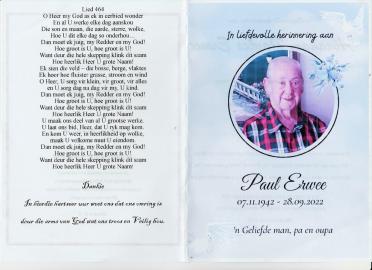 Lied 464
O Heer my God as ek in eerbied wonder
En al U werke elke dag aanskou
Die son en maan, die aarde, sterre, wolke,
Hoe U dit elke dag so onderhou...
Dan moet ek juig, my Redder en my God!
Hoe groot is U, hoe groot is U!
Want deur die hele skepping klink dit saam
Hoe heerlik Heer U grote Naam!
Ek sien die veld – die bosse, berge, vlaktes
Ek hoor hoe fluister grasse, stroom en wind
O Heer, U sorg vir klein, vir groot, vir alles
en U sorg dag na dag vir my, U kind.
Dan moet ek juig, my Redder en my God!
Hoe groot is U, hoe groot is U!
Want deur die hele skepping klink dit saam
Hoe heerlik Heer U grote Naam!
U maak ons deel van al U grootse werke.
U laat ons bid, Heer, dat U ryk mag kom.
En kom U weer, in heerlikheid op wolke,
maak U volkome waar U eiendom.
Dan moet ek juig, my Redder en my God!
Hoe groot is U, hoe groot is U!
Want deur die hele skepping klink dit saam
Hoe heerlik Heer U grote Naam!
Dankie
In hierdie hartseer uur weet ons dat ons omring is
deur die arms van God wat ons troos en Veilig hou.
In liefdevolle herinnering aan
Paul Erwee
07.11.1942 - 28.09.2022
'n Geliefde man, pa en oupa